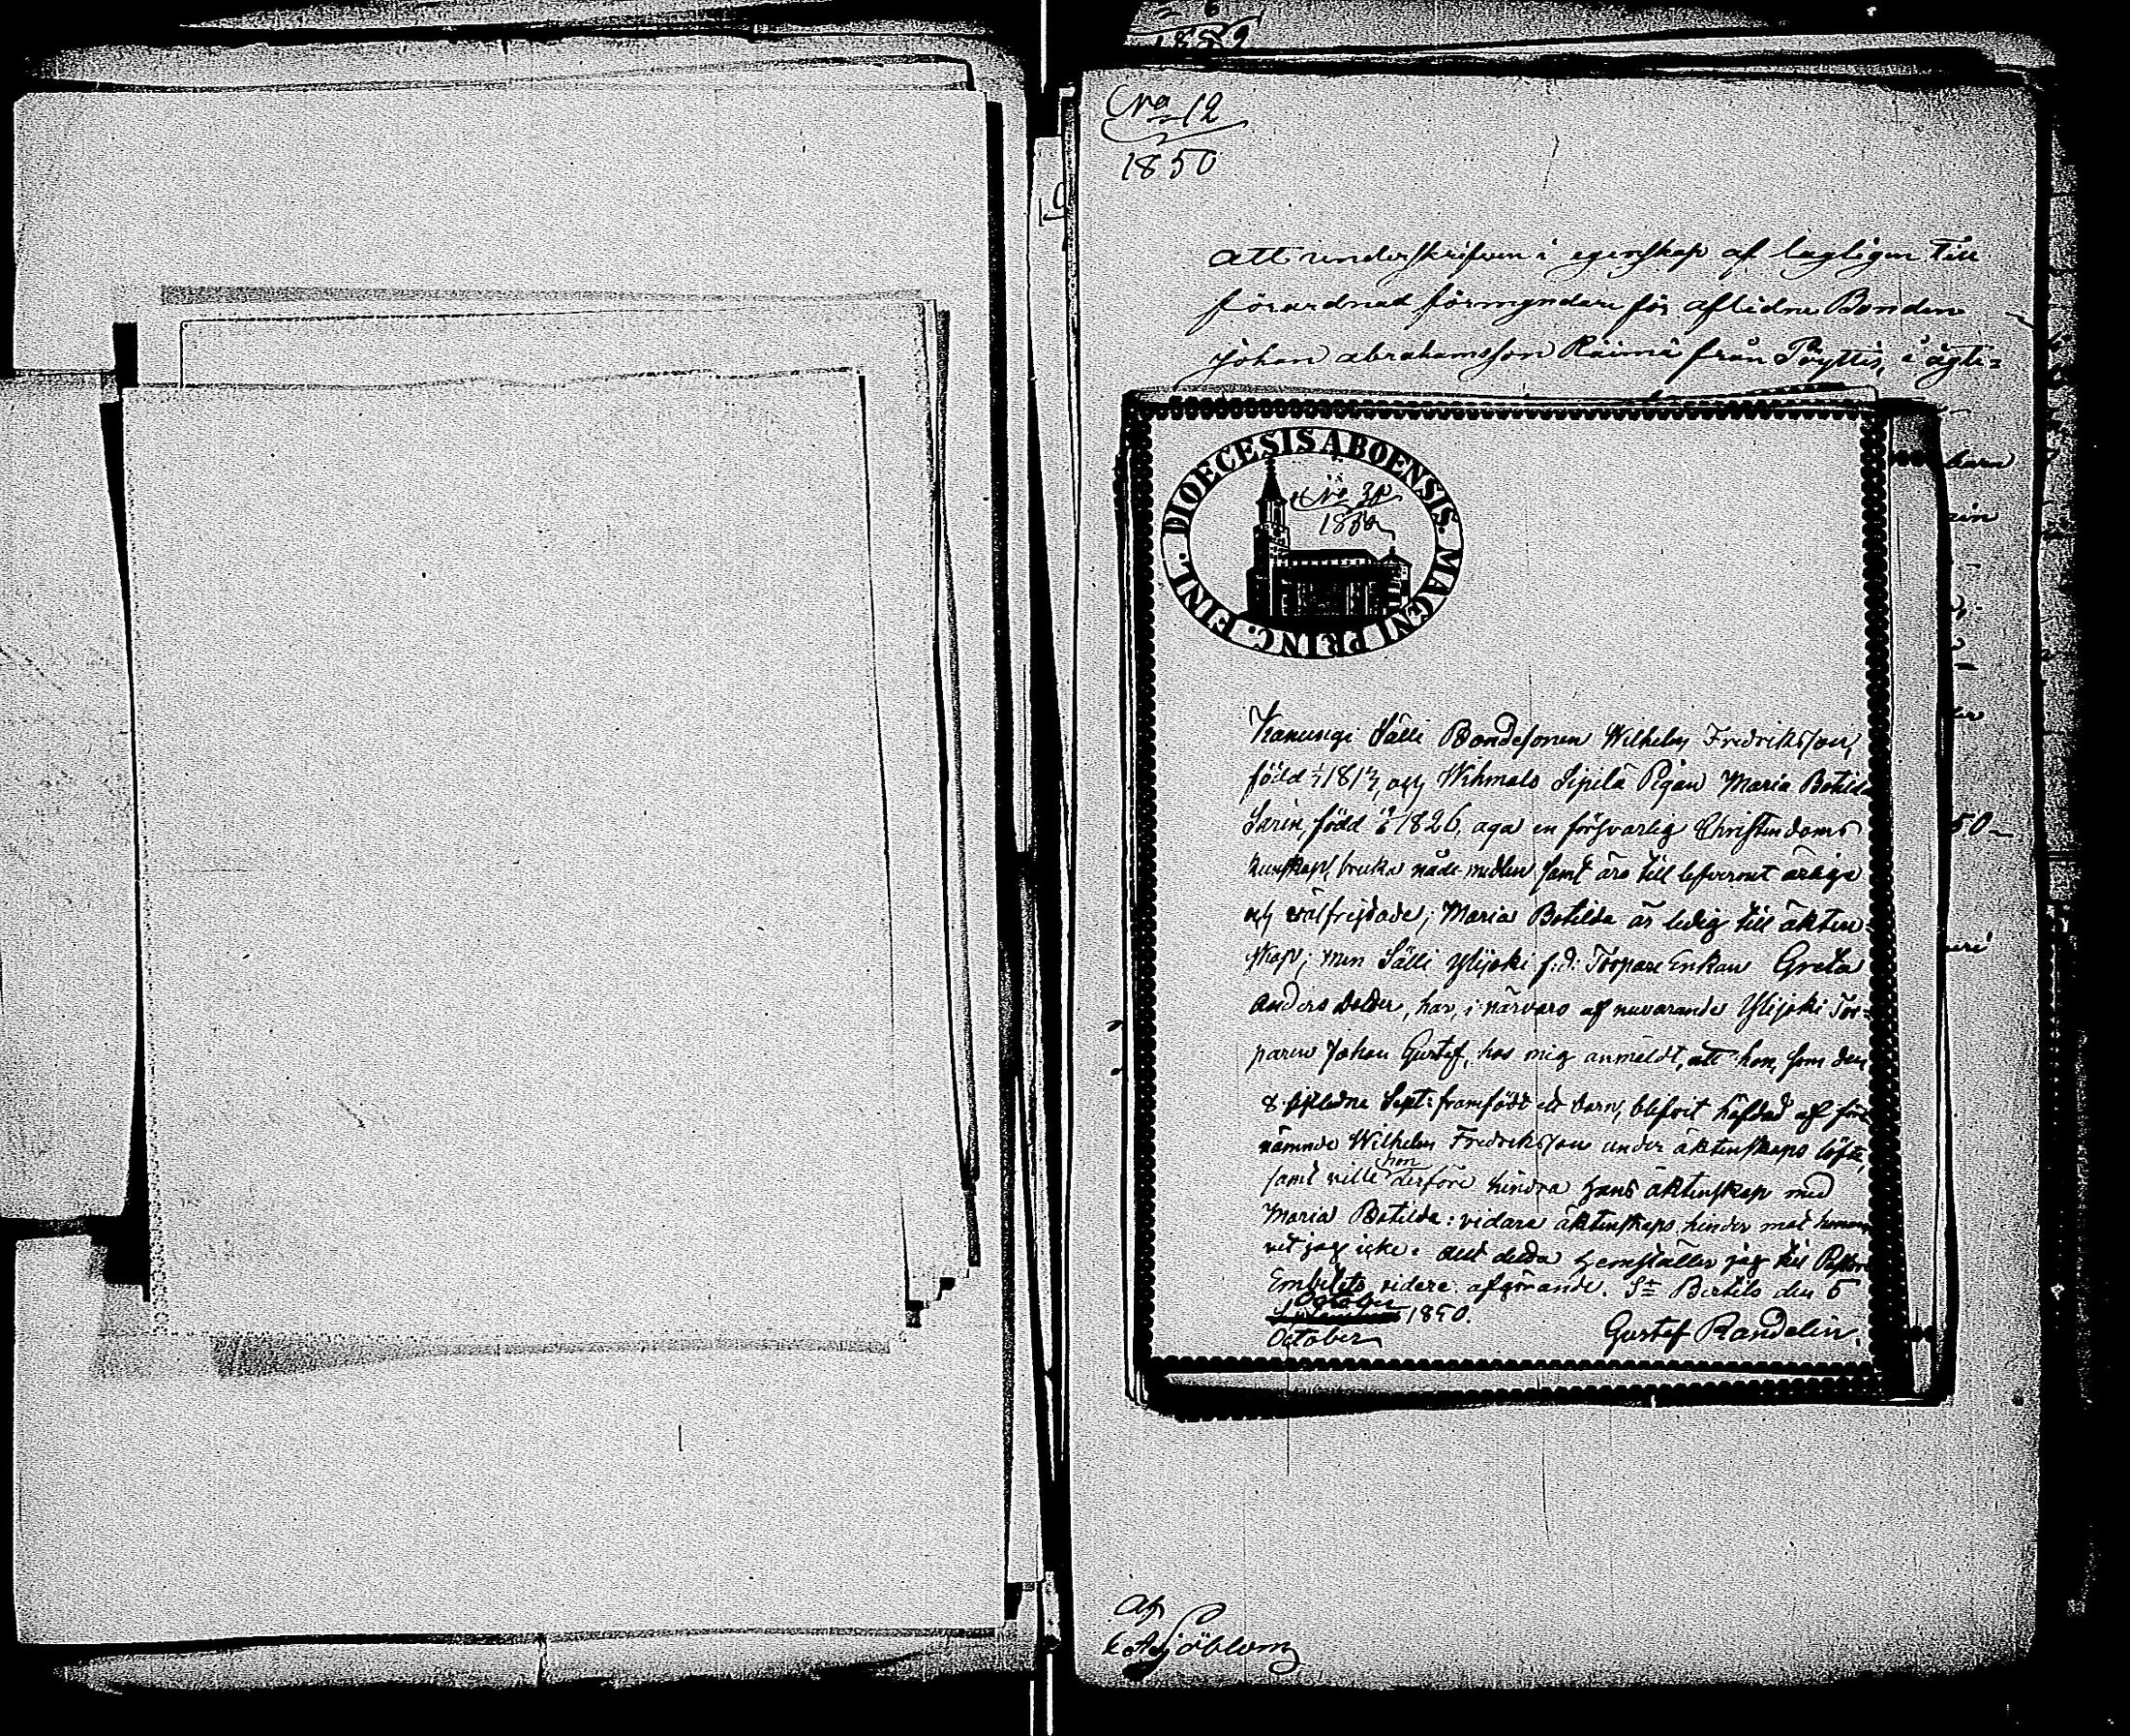 1889
No 12
1850
Att underskrifven i egenskap af lagligen till
förordnad förmyndare för aflidne Bonden
Johan Abrahamsson Räimä från Pöyttis, i ägte-
barn
50
DIOECESIS ABOENSIS MAGNI PRINC. FINL.
1850
Kanunigi Sälli Bondesonen Wilhelm Fredriksson,
född och Wihmalo Sipilä Pigan Maria Botilda
född 1826, äga en försvarlig Christendoms
kunskap, bruka nåde medlen samt äro till lefvernet ärliga
och välfrejdade; Maria Botilda är ledig till äkten-
skap; men Sälli Ylijoki f:d: Torpare Enkan Greta
Anders dotter, har, i närvaro af nuvarande Ylijoki Tor-
paren Johan Gustaf, hos mig anmäldt, att hon, som den
8 sistledne Sept: framfödt ett barn, blifvit häfdad af före
nämnde Wilhelm Fredriksson under äktenskaps löfte,
samt ville hon derföre hindra hans äktenskap med
Maria Botilda: vidare äktenskaps hinder mot honom
vet jag icke. Allt detta hemställer jag till Pastors
Embetets vidare afgörande. St Bertils den 5
October 1850.
October
Gustaf Randelin.
Af
Sjöblom